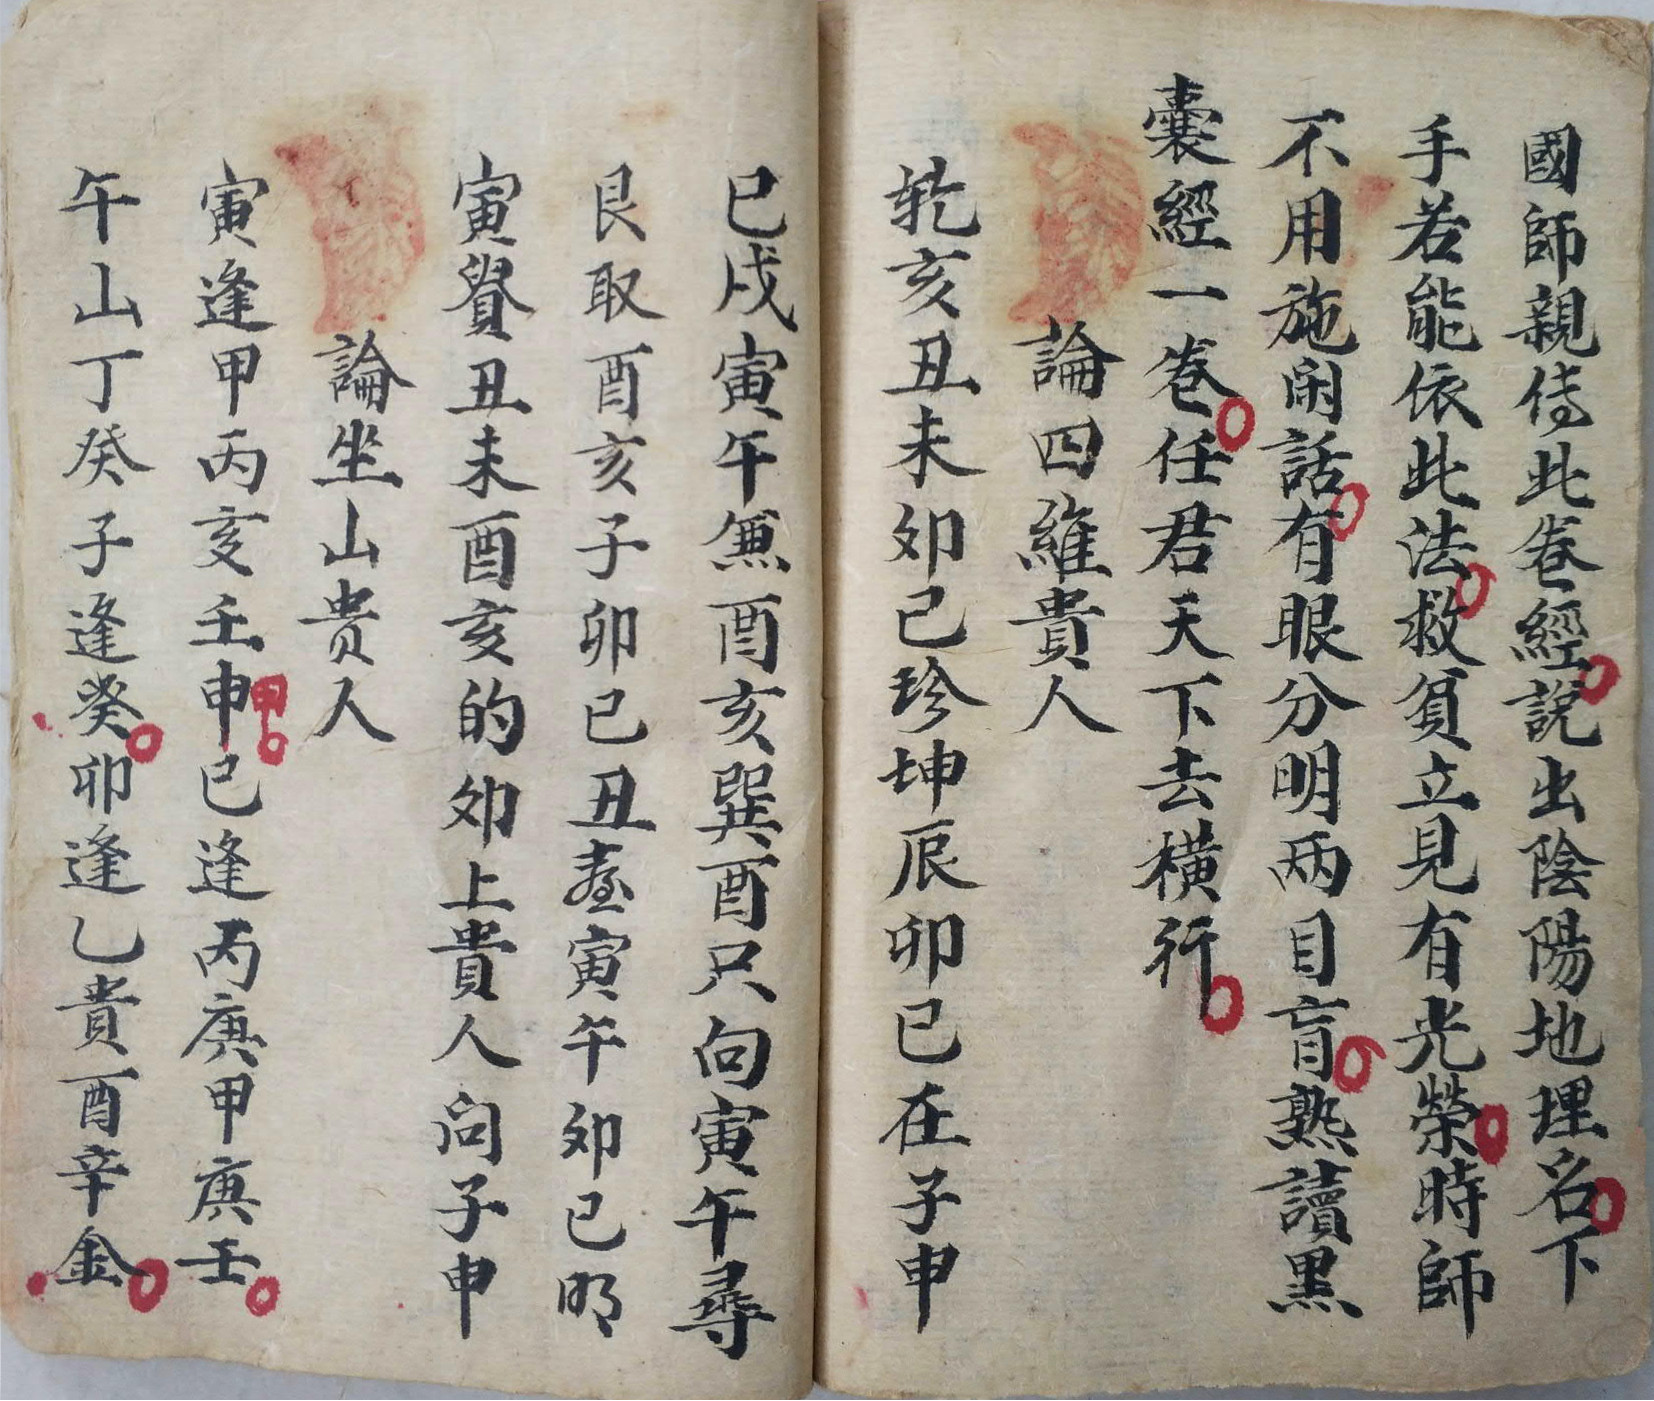 國師親侍此卷經說出陰陽地理名下
手若能依此法救貧立見有光榮時師
不用施閑話有眼分明兩目盲熟讀黑
囊經一卷任君天下去橫行
論四維貴人
乾亥丑未卯己珍坤辰卯巳在子申
巳戌寅午無酉亥巽酉只向寅午尋
艮取酉亥子卯巳丑寅午卯巳明
寅貲丑未酉亥的卯上貴人向子申
論坐山贵人
寅逢甲丙亥壬申甲巳逢丙庚甲庚壬
午山丁癸子逢癸卯逢乙貴酉辛金